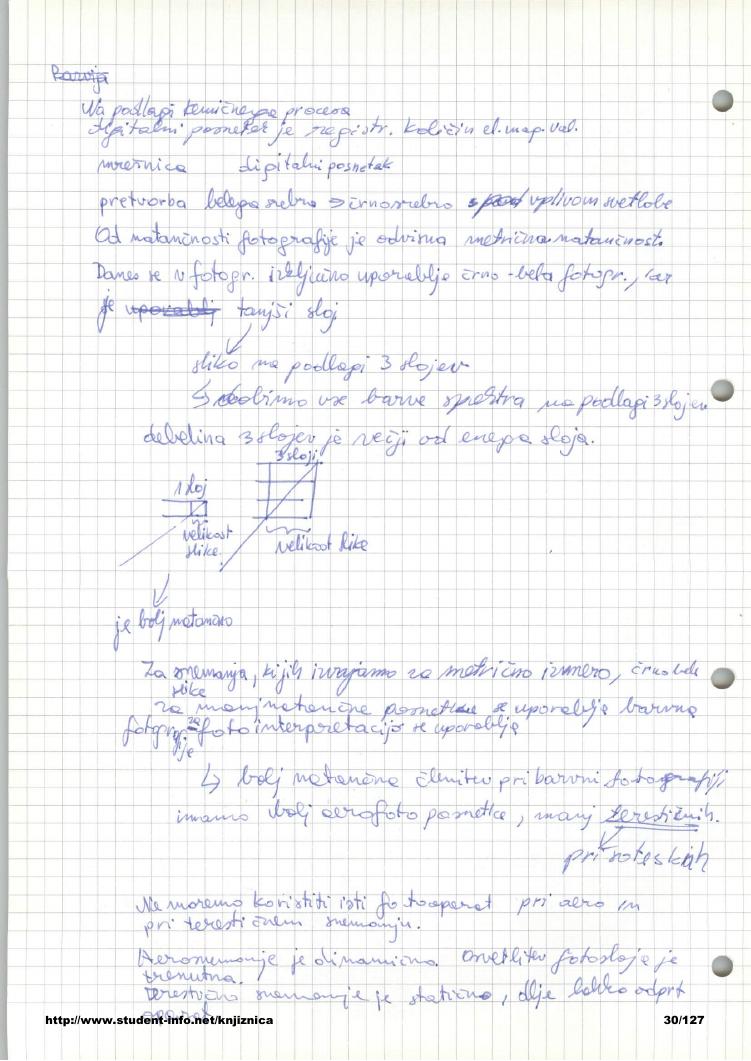 Na podlagi kemičnega procesa
digitalni posnetek je registr. količin el. mag. val.
mrežnica digitalni posnetek
pretvorba belega srebra → črno srebro pod vplivom svetlobe
Od natančnosti fotografije je odvisna metrična natančnost.
Danes se v fotogr. izključno uporablja črno-bela fotogr., kar
je uporablj tanjši sloj
sliko na podlagi 3 slojev
↳ dobimo vse barve spektra na podlagi 3 slojev
debelina 3 slojev je večji od enega sloja.
3 sloji
1 sloj
velikost slike
velikost slike
je bolj natančno
Za snemanja, ki jih izvajamo za metrično izmero, črno bele
slike
za manj natančne posnetke se uporablja barvna
fotografije za foto interpretacijo se uporablja
↳ bolj natančna členitev pri barvni fotografiji
imamo bolj aerofoto posnetke, manj terestičnih.
pri soteskah
Ne moremo koristiti isti fotoaparat pri aero in
pri terestičnem snemanju.
Aerosnemanje je dinamično. Osvetlitev fotosloja je
trenutna.
Terestično snemanje je statično, dlje lahko odprt
aparat
http://www.student-info.net/knjiznica 30/127